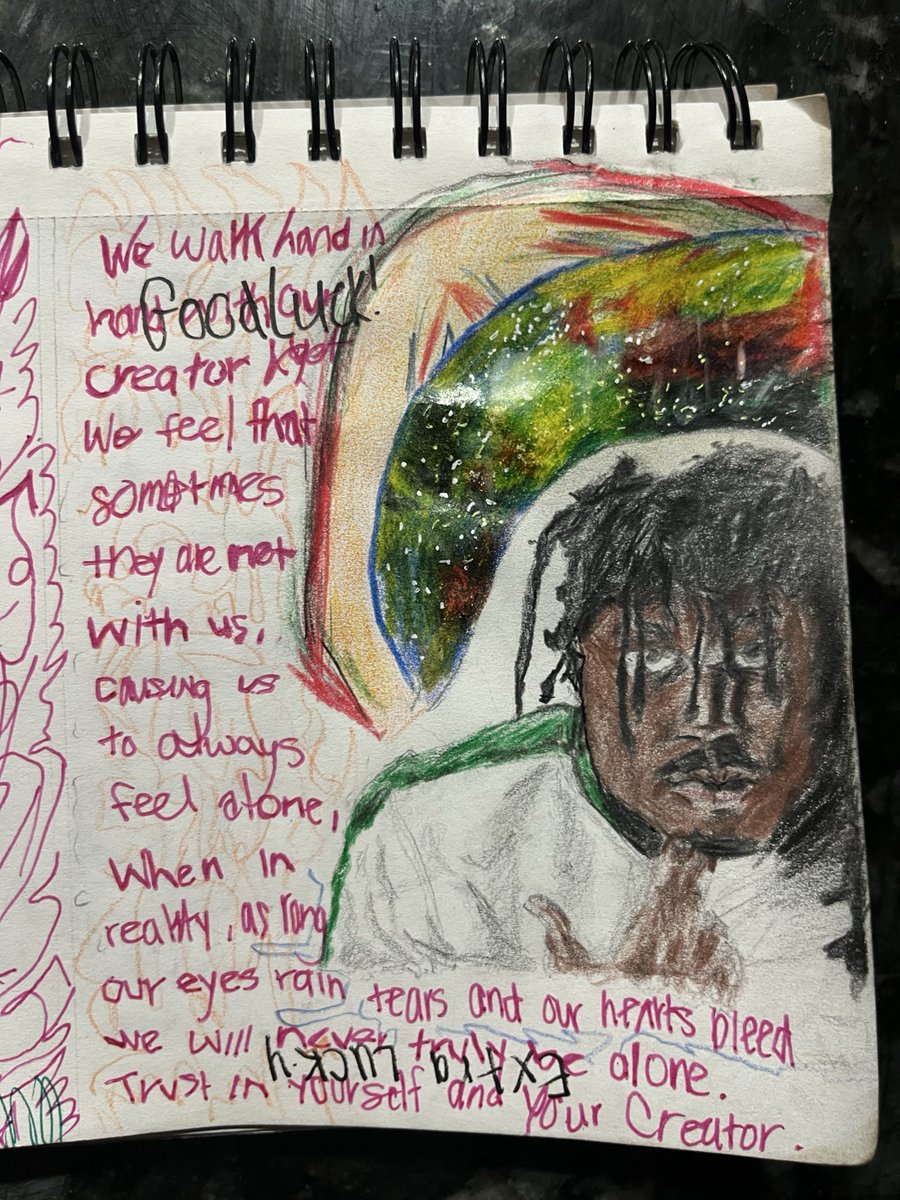 We walk hand in
hand with our
Good Luck!
Creator yet
We feel that
sometimes
they are not
with us,
causing us
to always
feel alone,
When in
reality, as long
our eyes rain tears and our hearts bleed
we will never truly be alone.
Extra Lucky
Trust in yourself and your Creator.